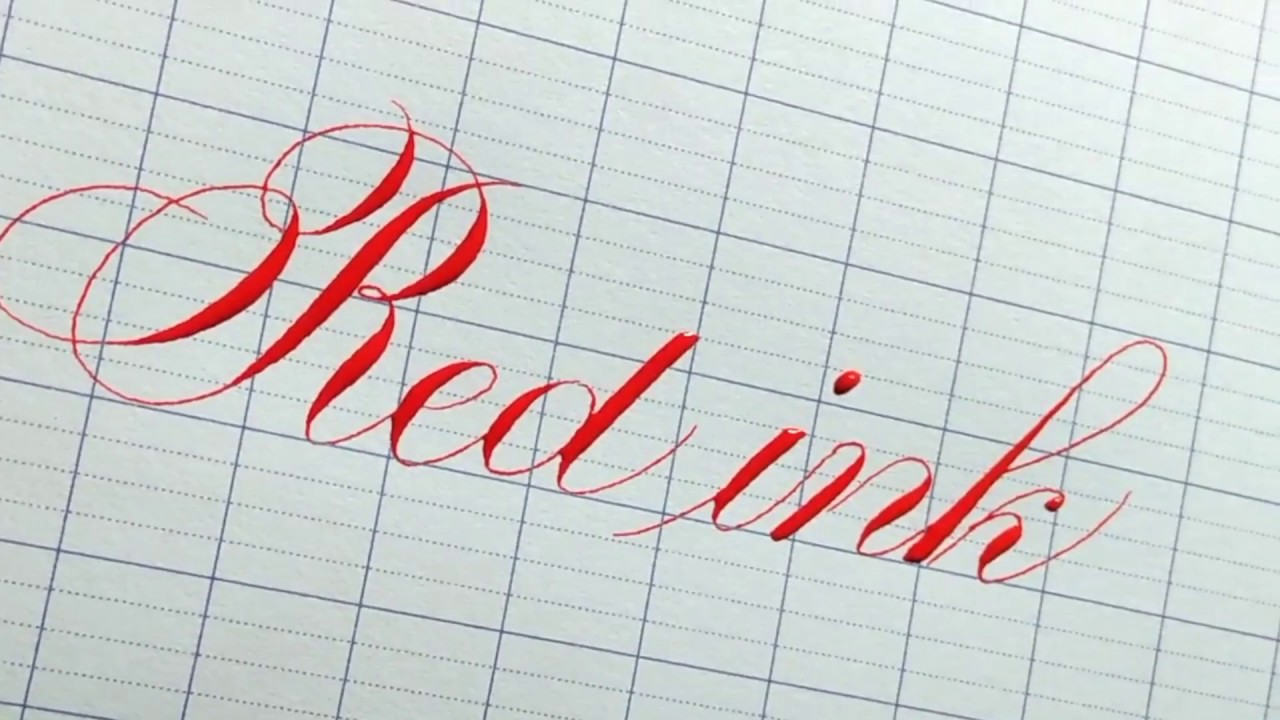 Red ink